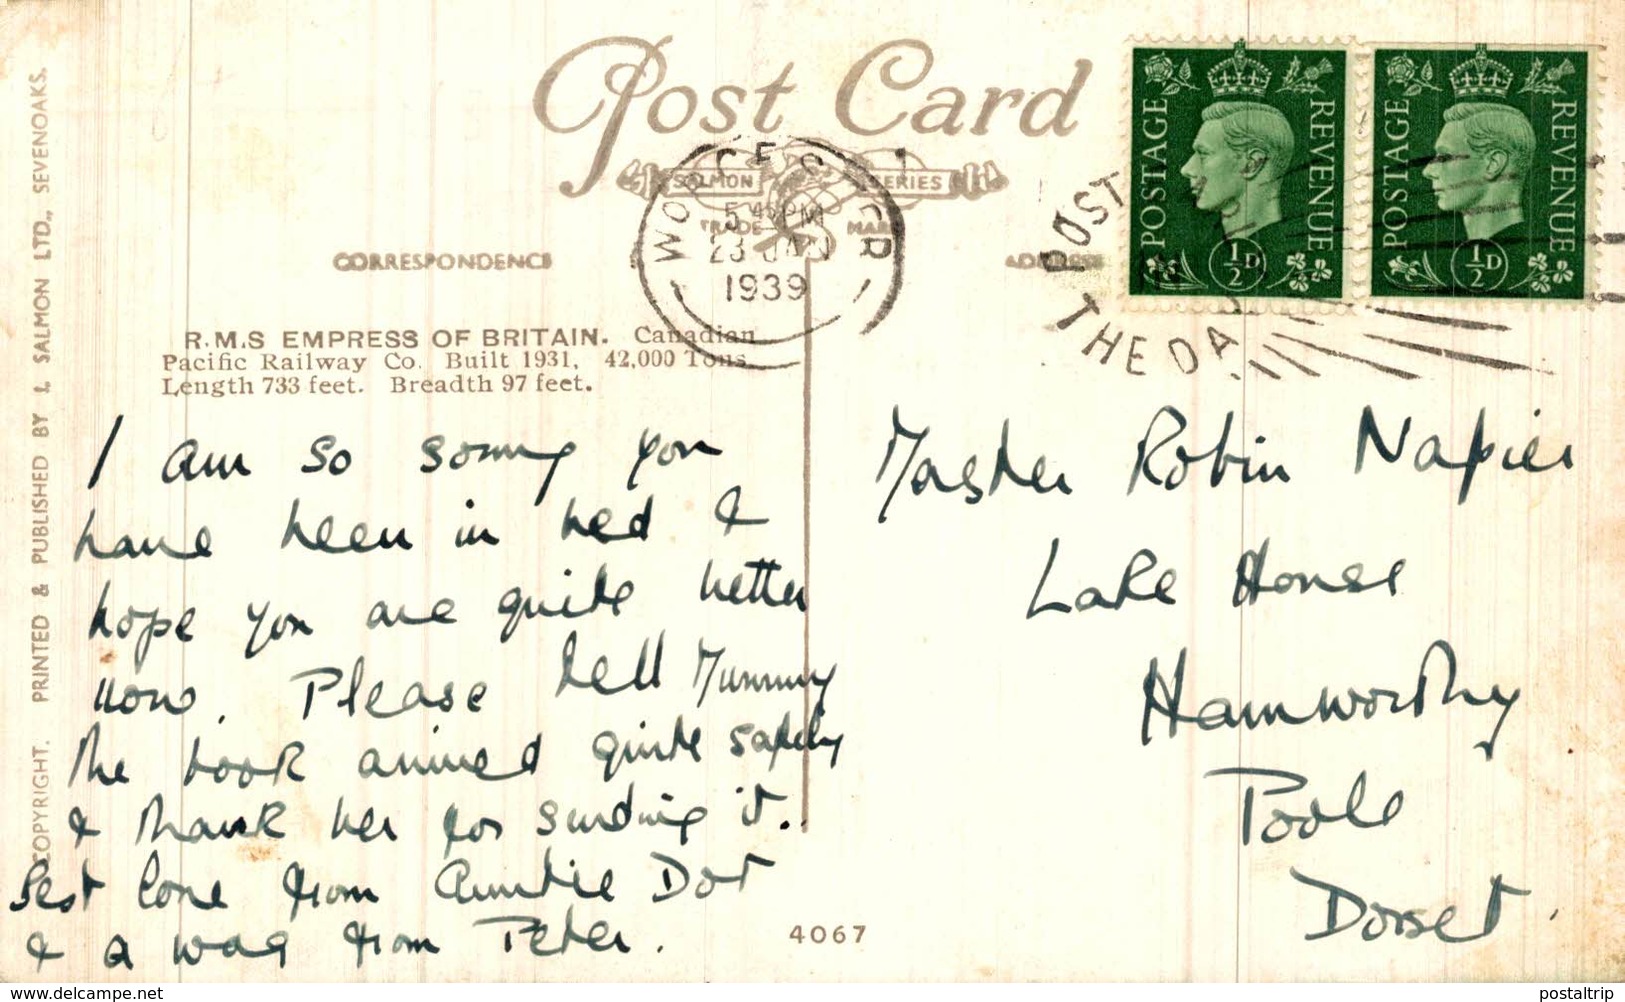 Post Card
SALMON SERIES
TRADE MARK
CORRESPONDENCE
ADDRESS
WORCESTER
5 45 PM
23 JAN
1939
POSTAGE REVENUE
½D
POSTAGE REVENUE
½D
POST
THE DA
R.M.S EMPRESS OF BRITAIN. Canadian
Pacific Railway Co. Built 1931, 42,000 Tons
Length 733 feet. Breadth 97 feet.
COPYRIGHT. PRINTED & PUBLISHED BY J. SALMON LTD., SEVENOAKS.
I am so sorry you
have been in bed &
hope you are quite better
now. Please tell Mummy
the book arrived quite safely
& thank her for sending it..
Best love from Auntie Dot
& a wag from Peter.
Master Robin Napier
Lake House
Hamworthy
Poole
Dorset.
4067
www.delcampe.net
postaltrip